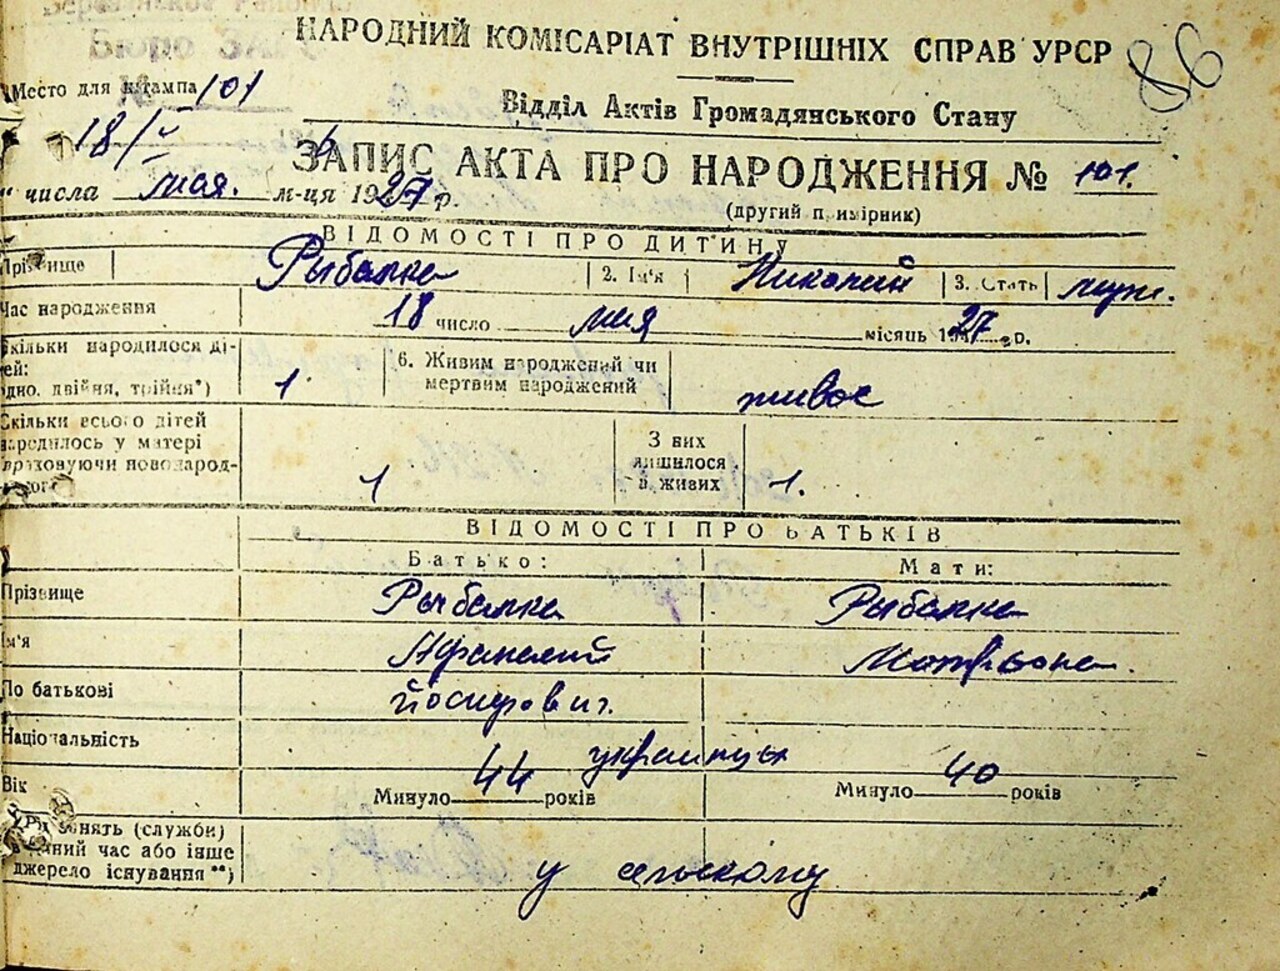 86
НАРОДНИЙ КОМІСАРІАТ ВНУТРІШНІХ СПРАВ УРСР
Место для штампа 101
Відділ Актів Громадянського Стану
18/V
ЗАПИС АКТА ПРО НАРОДЖЕННЯ № 101.
" числа мая. м-ця 1927 р.
(другий примірник)
ВІДОМОСТІ ПРО ДИТИНУ
Прізвище Рыбалка 2. Ім'я Николай 3. Стать муж.
Час народження 18 число мая місяць 1927 р.
Скільки народилося ді-
тей:
одно, двійня, трійня*) 1 6. Живим народжений чи
мертвим народжений живое
Скільки всього дітей
народилось у матері
враховуючи новонарод-
1 З них
лишилося
в живих 1.
ВІДОМОСТІ ПРО БАТЬКІВ
Батько: Мати:
Прізвище Рыбалка Рыбалка
Ім'я Афанасий Мотрьона.
По батькові Йосипович.
Національність украинцы
Вік Минуло 44 років Минуло 40 років
занять (служби)
в даний час або інше
джерело існування **) у сельскому